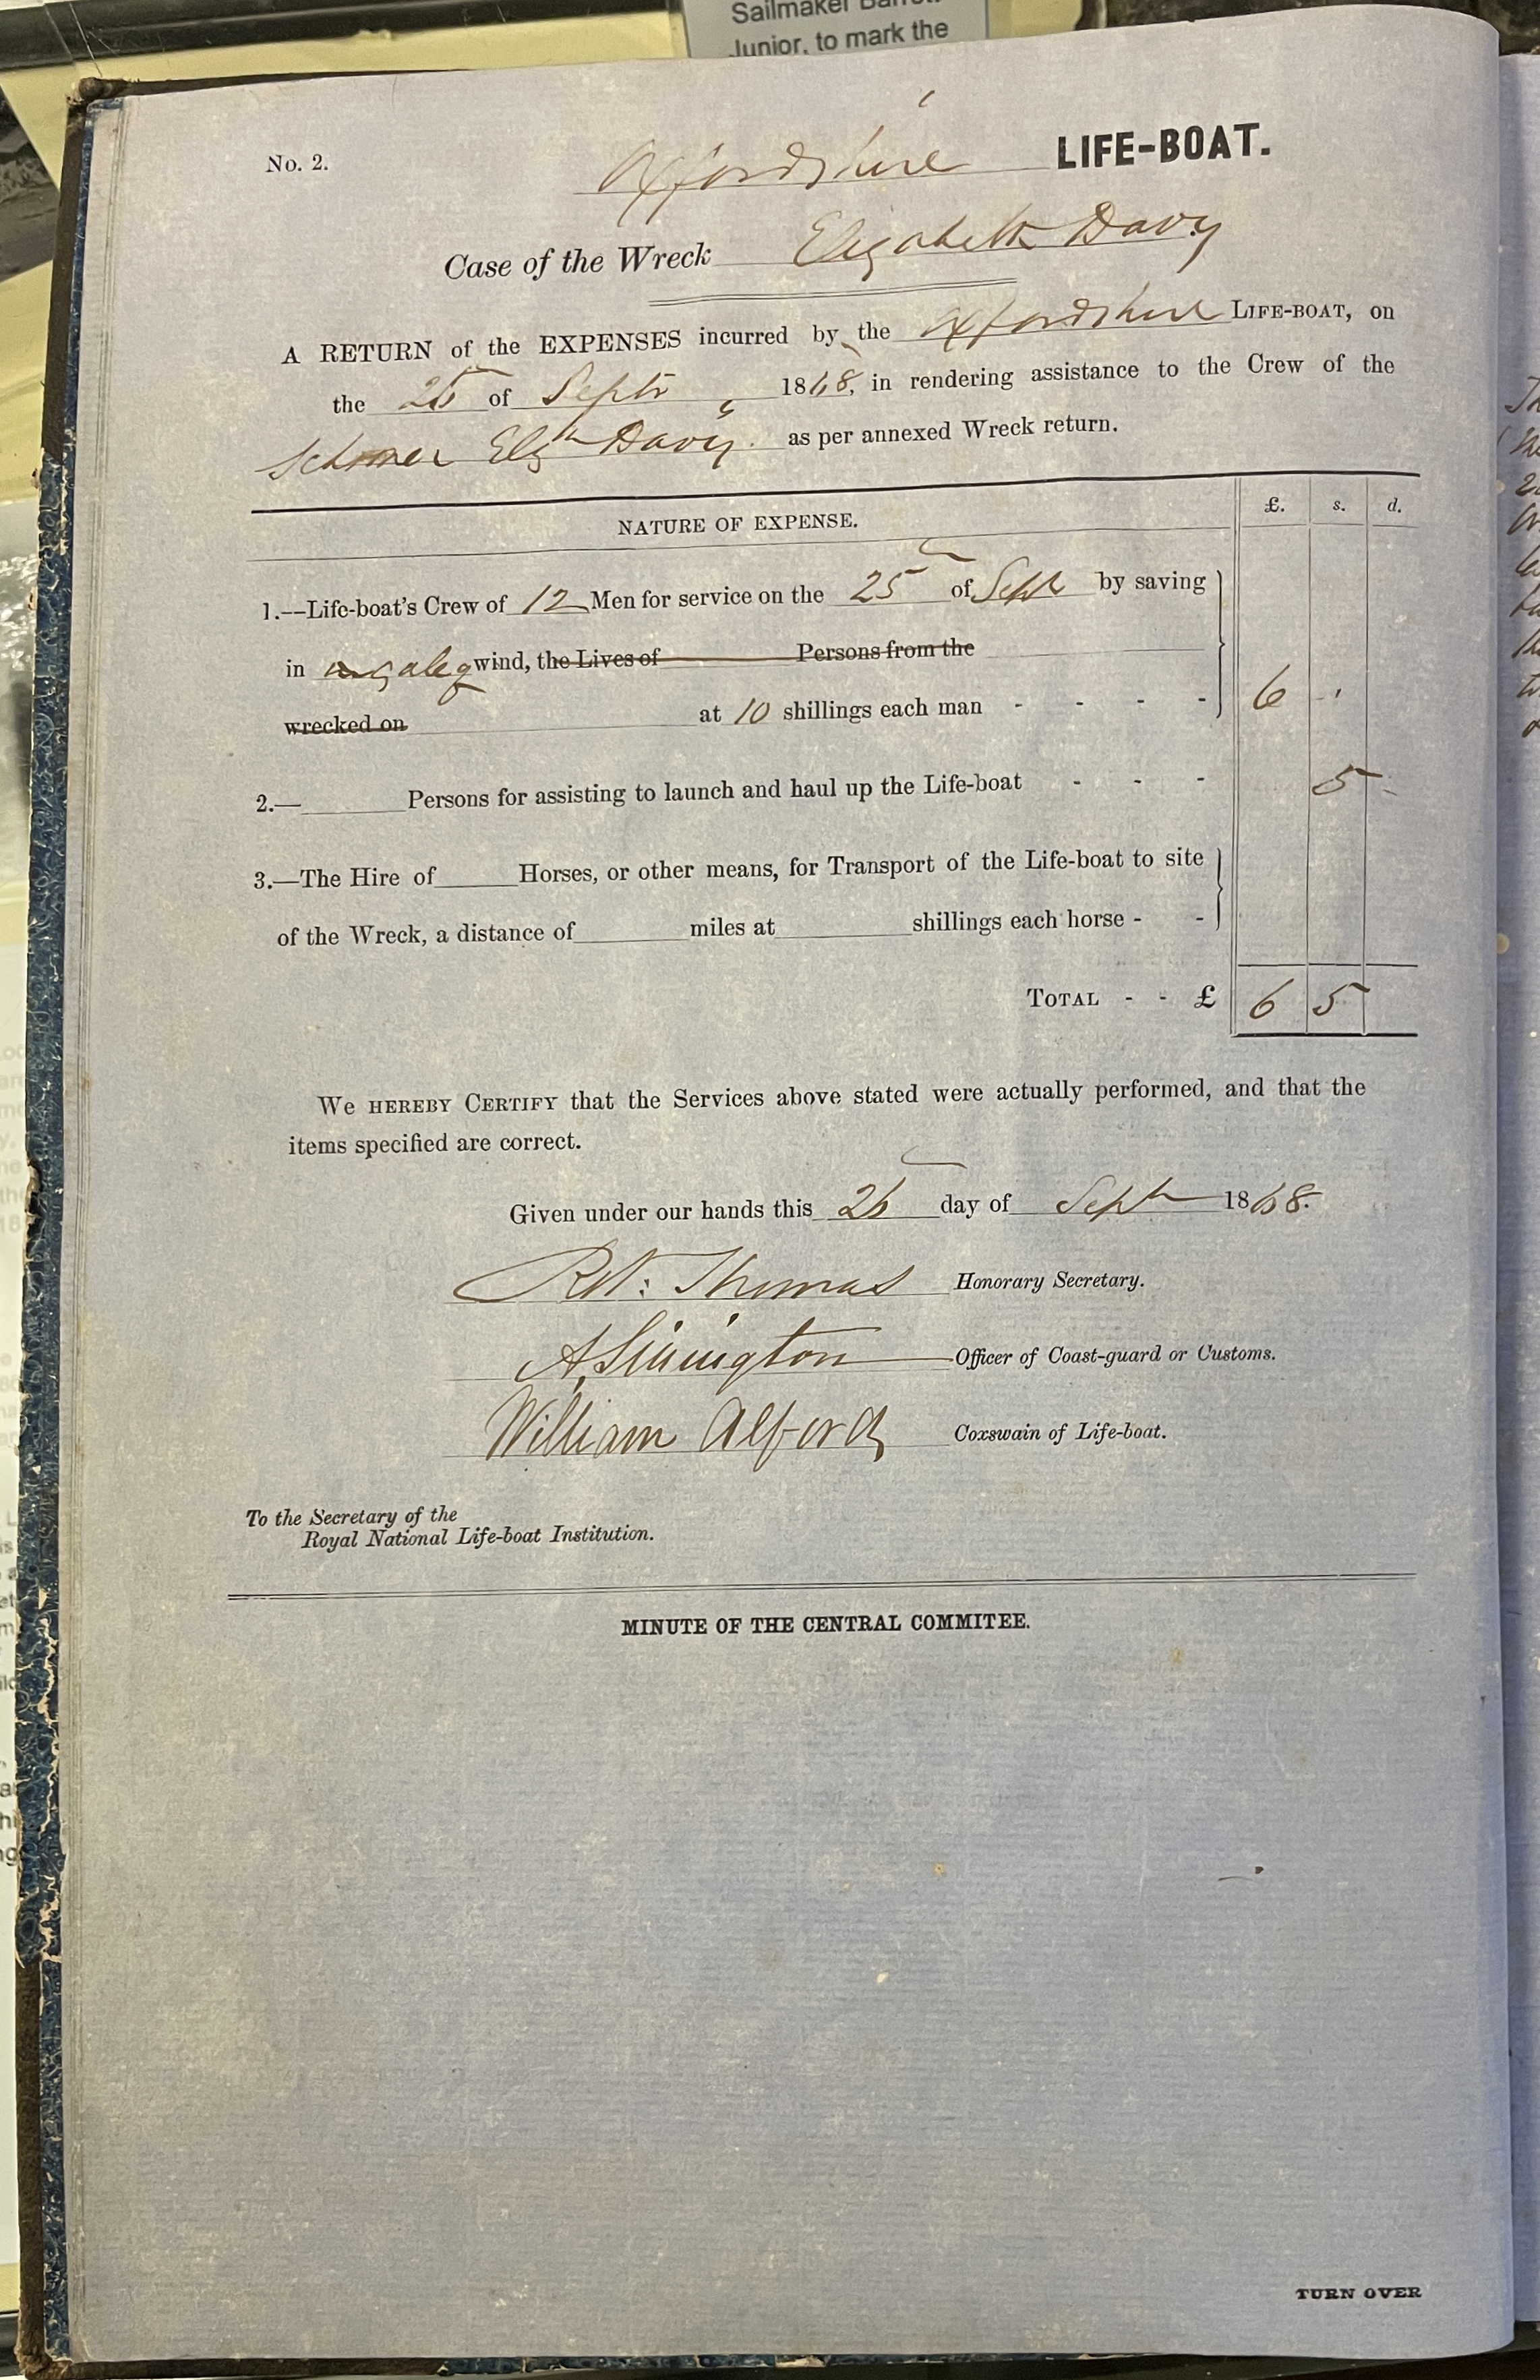 Sailmaker
Junior, to mark the
No. 2. Oxfordshire LIFE-BOAT.
Case of the Wreck Elizabeth Davy
A RETURN of the EXPENSES incurred by the Oxfordshire LIFE-BOAT, on
the of Septr 1868, in rendering assistance to the Crew of the
Schooner Elizth Davy. as per annexed Wreck return.
NATURE OF EXPENSE. £. s. d.
1.—Life-boat's Crew of 12 Men for service on the 25 of Sept by saving
in gale of wind, the Lives of Persons from the
wrecked on at 10 shillings each man - - - - 6
2.— Persons for assisting to launch and haul up the Life-boat - - - 5
3.—The Hire of Horses, or other means, for Transport of the Life-boat to site
of the Wreck, a distance of miles at shillings each horse - -
TOTAL - - £ 6 5
WE HEREBY CERTIFY that the Services above stated were actually performed, and that the
items specified are correct.
Given under our hands this 26 day of Sept 1868.
Robt: Thomas Honorary Secretary.
Officer of Coast-guard or Customs.
William Alford Coxswain of Life-boat.
To the Secretary of the
Royal National Life-boat Institution.
MINUTE OF THE CENTRAL COMMITEE.
TURN OVER